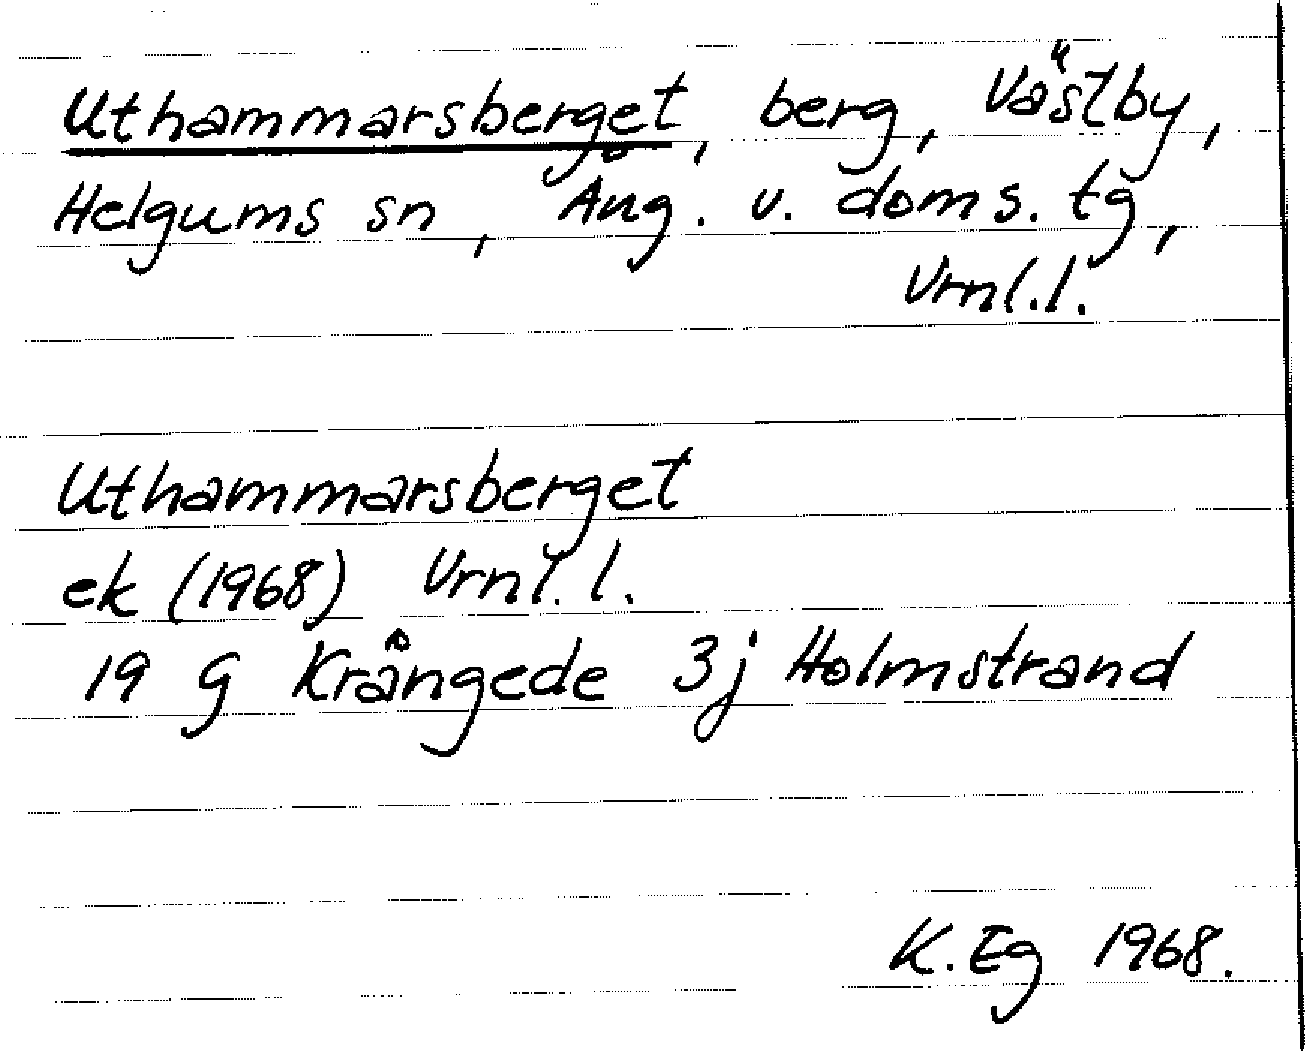 Uthammarsberget, berg, Västby,
Helgums sn, Ång. v. doms. tg,
Vrnl.l.
Uthammarsberget
ek (1968) Vrnl.l.
19 G Krångede 3j Holmstrand
K.Eg 1968.